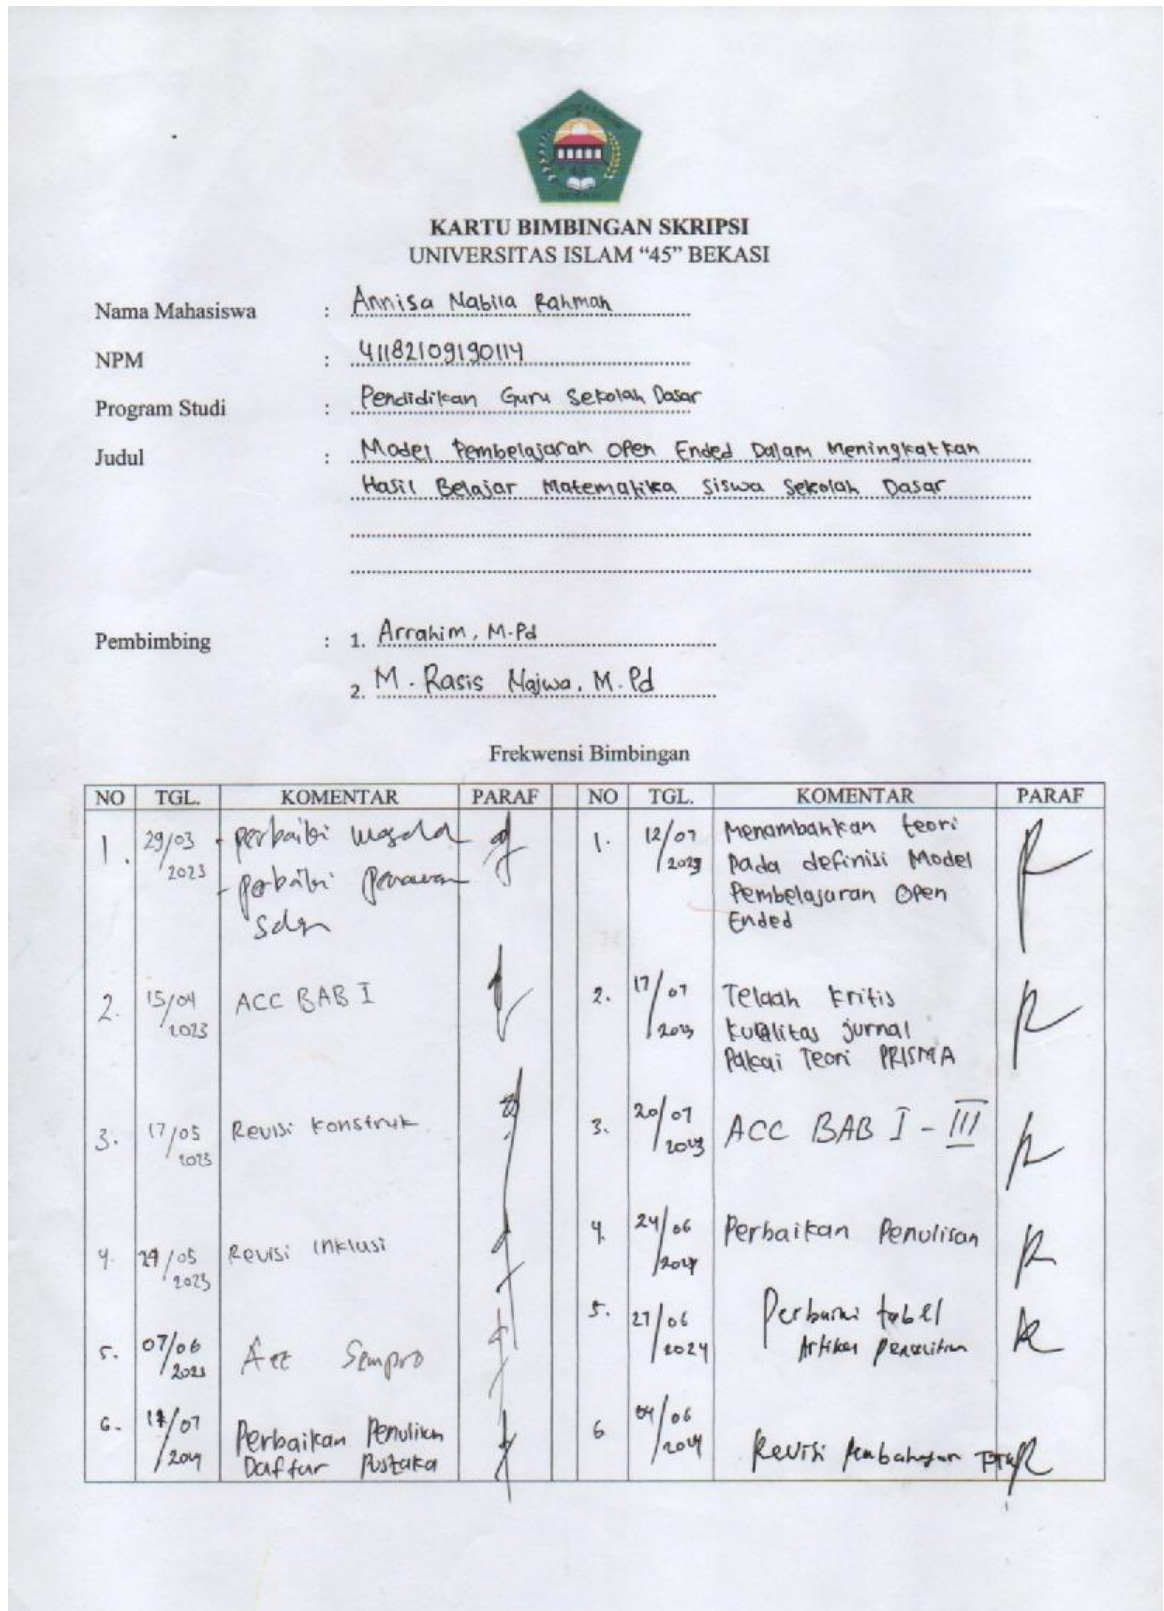 KARTU BIMBINGAN SKRIPSI
UNIVERSITAS ISLAM “45” BEKASI
Nama Mahasiswa : Annisa Nabila Rahmah
NPM : 41182109190114
Program Studi : Pendidikan Guru Sekolah Dasar
Judul : Model Pembelajaran Open Ended Dalam Meningkatkan
Hasil Belajar Matematika Siswa Sekolah Dasar
Pembimbing : 1. Arrahim, M.Pd
2. M. Rasis Najwa, M.Pd
Frekwensi Bimbingan
NO TGL. KOMENTAR PARAF
1. 29/03 2023 - perbaiki
- perbaiki
2. 15/04 2023 ACC BAB I
3. 17/05 2023 Revisi Konstruk
4. 29/05 2023 Revisi Inklusi
5. 07/06 2023 Acc Sempro
6. /07 2024 Perbaikan Penulisan
Daftar Pustaka
NO TGL. KOMENTAR PARAF
1. 12/07 2023 Menambahkan teori
pada definisi Model
Pembelajaran Open
Ended
2. 17/07 2023 Telaah Kritis
kualitas jurnal
Pakai Teori PRISMA
3. 20/07 2023 ACC BAB I - III
4. 24/06 2024 Perbaikan Penulisan
5. 27/06 2024 tabel
Artikel Penelitian
6 04/06 2024 Revisi Pembahasan